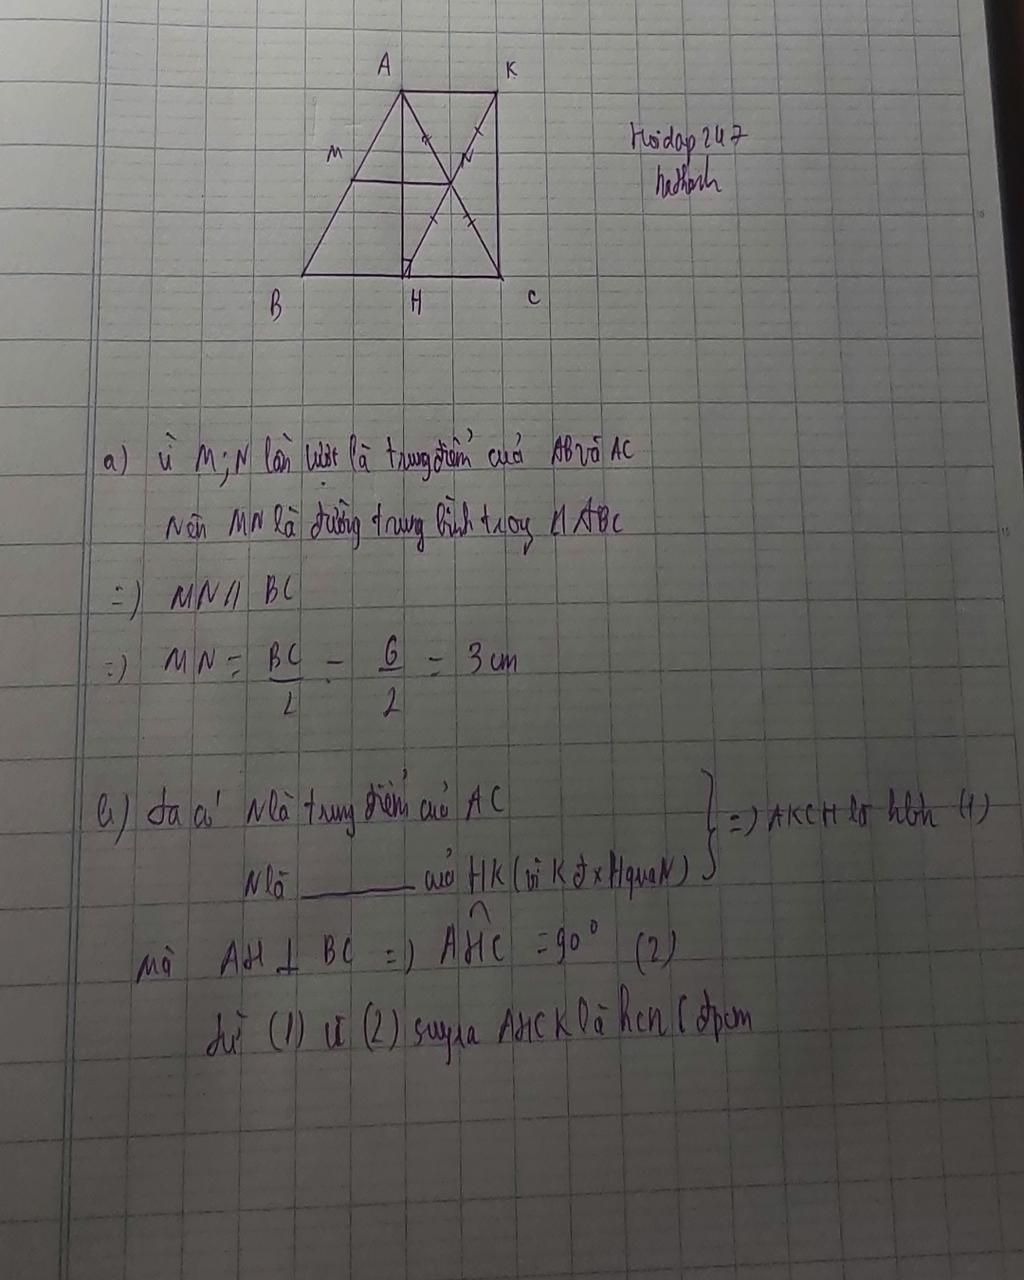 A K
Hoidap247
M N
B H C
a) Vì M; N lần lượt là trung điểm của AB và AC
Nên MN là đường trung bình trong Δ ABC
=) MN // BC
=) MN = BC/2 = 6/2 = 3 cm
b) Ta có N là trung điểm của AC
N là ______ của HK (vì K đx H qua N) } =) AKCH là hbh (1)
Mà AH ⊥ BC =) AHC = 90° (2)
Từ (1) và (2) suy ra AHCK là hcn (đpcm